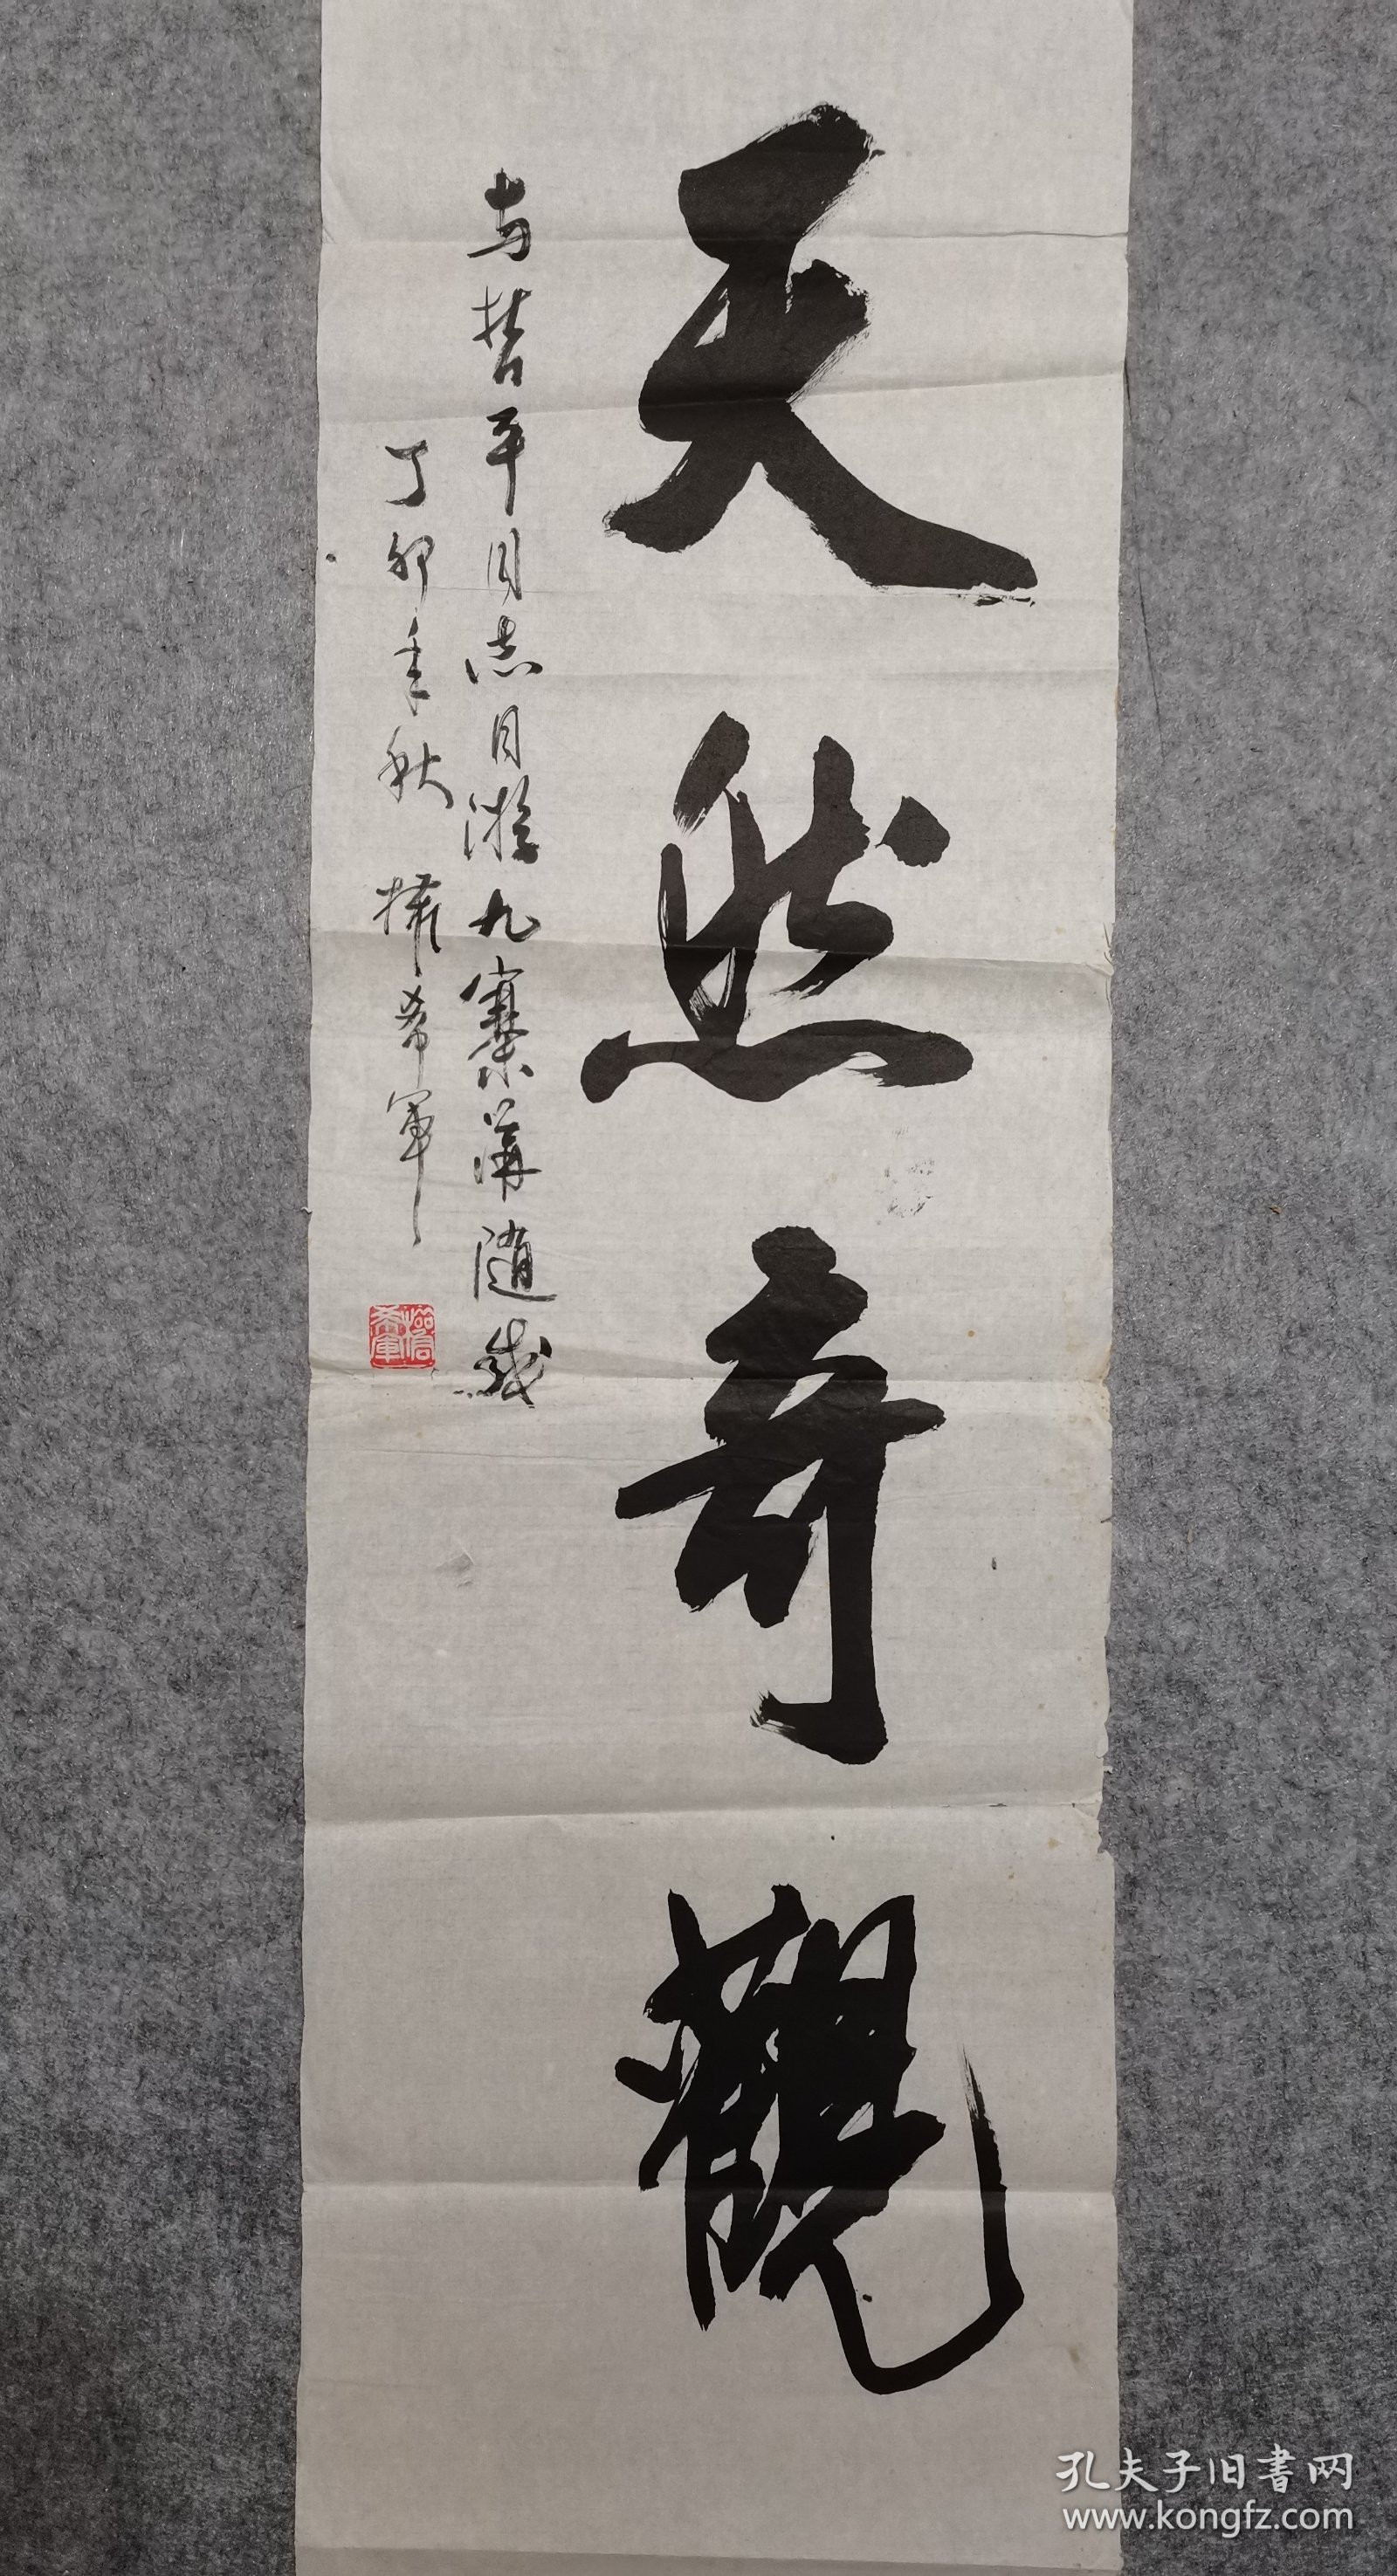 天然奇觀
与平同志同游九寨溝随感
丁卯年秋 希军
孔夫子旧書网
www.kongfz.com